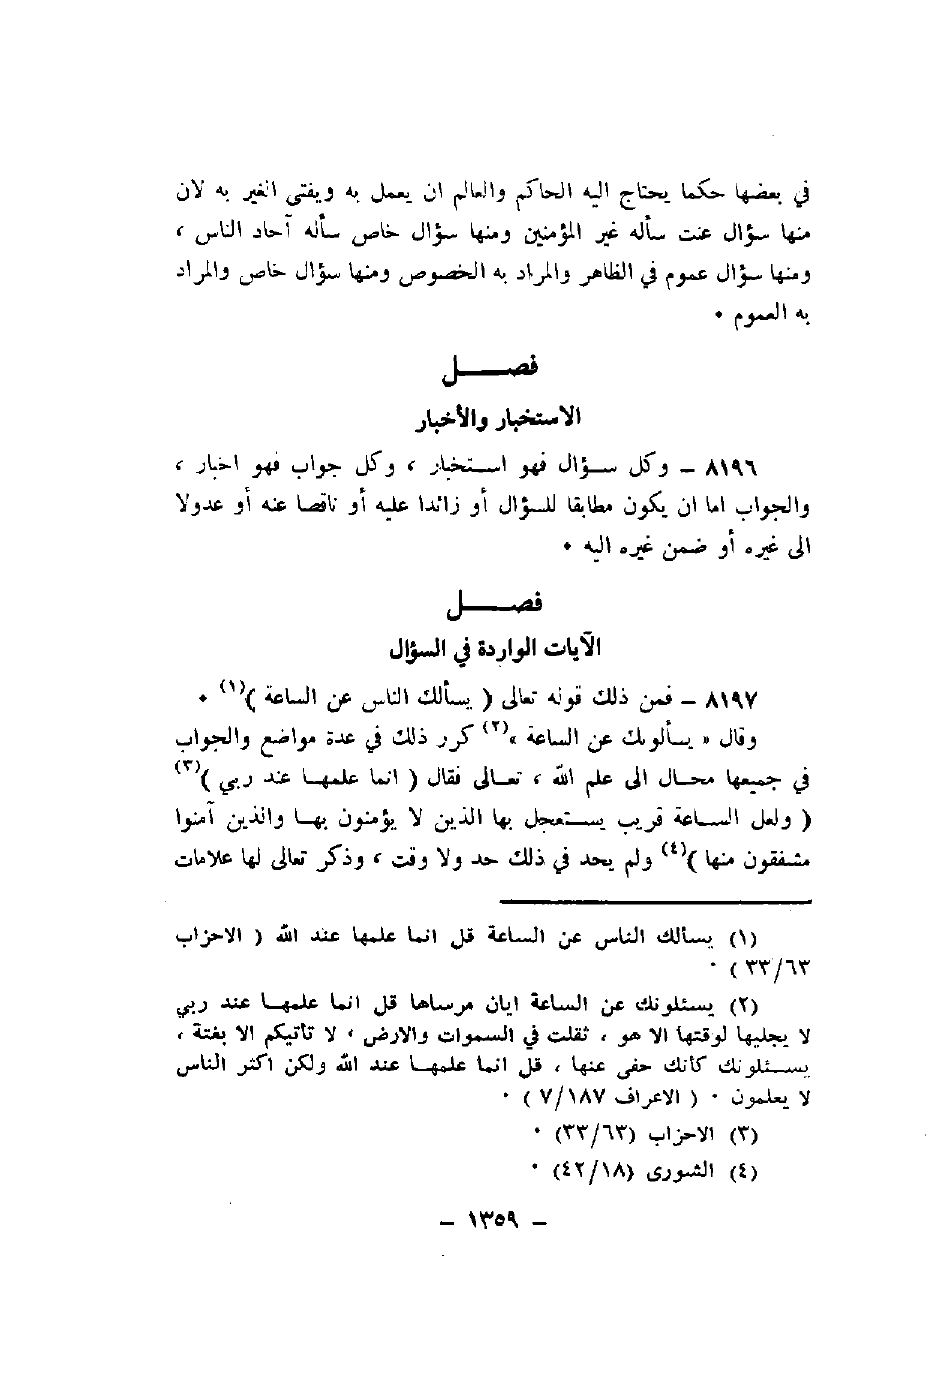 في بعضها حكما يحتاج اليه الحاكم والعالم ان يعمل به ويفتي الغير به لان
منها سؤال عنت سأله غير المؤمنين ومنها سؤال خاص سأله آحاد الناس ،
ومنها سؤال عموم في الظاهر والمراد به الخصوص ومنها سؤال خاص والمراد
به العموم ٠
فصــــل
الاستخبار والأخبار
٨١٩٦ – وكل سؤال فهو استخبار ، وكل جواب فهو اخبار ،
والجواب اما ان يكون مطابقا للسؤال أو زائدا عليه أو ناقصا عنه أو عدولا
الى غيره أو ضمن غيره اليه ٠
فصــــل
الآيات الواردة في السؤال
٨١٩٧ – فمن ذلك قوله تعالى ( يسألك الناس عن الساعة )(١) ٠
وقال « يسألونك عن الساعة »(٢) كرر ذلك في عدة مواضع والجواب
في جميعها محال الى علم الله ، تعالى فقال ( انما علمها عند ربي )(٣)
( ولعل الساعة قريب يستعجل بها الذين لا يؤمنون بها والذين آمنوا
مشفقون منها )(٤) ولم يحد في ذلك حد ولا وقت ، وذكر تعالى لها علامات
(١) يسألك الناس عن الساعة قل انما علمها عند الله ( الاحزاب
٣٣/٦٣ ) ٠
(٢) يسئلونك عن الساعة ايان مرساها قل انما علمها عند ربي
لا يجليها لوقتها الا هو ، ثقلت في السموات والارض ، لا تأتيكم الا بغتة ،
يسئلونك كأنك حفى عنها ، قل انما علمها عند الله ولكن اكثر الناس
لا يعلمون ٠ ( الاعراف ٧/١٨٧ ) ٠
(٣) الاحزاب (٣٣/٦٣) ٠
(٤) الشورى (٤٢/١٨) ٠
– ١٣٥٩ –